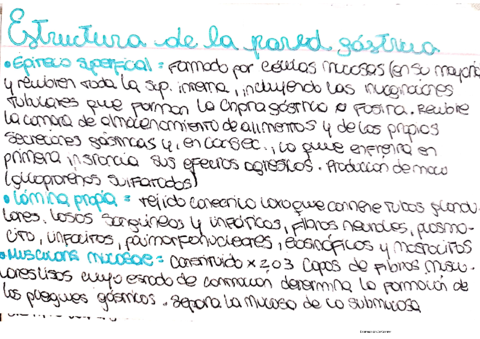 Estructura de la pared gástrica
• Epitelio superficial = Formado por células mucosas (en su mayoría)
y recubren toda la sup. interna, incluyendo las invaginaciones
tubulares que forman la cripta gástrica o fosita. Recubre
la cámara de almacenamiento de alimentos y de las propias
secreciones gástricas y, en consec., lo que enfrenta en
primera instancia sus efectos agresivos. Producción de moco
(glucoproteínas sulfatadas)
• Lámina propia = tejido conectivo laxo que contiene tubos glandu-
lares, vasos sanguíneos y linfáticos, fibras neurales, plasmo-
cito, linfocitos, polimorfonucleares, eosinófilos y mastocitos
• Muscularis mucosae = constituido x 2 o 3 capas de fibras muscu-
lares lisas cuyo estado de contracción determina la formación de
los pliegues gástricos. Separa la mucosa de la submucosa